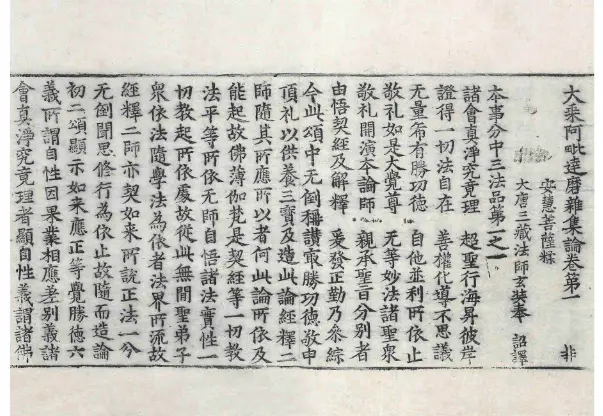 大乗阿毗達磨雜集論卷第一
非
安慧菩薩糅
大唐三藏法師玄奘奉 詔譯
本事分中三法品第一之一
諸會真淨究竟理 超聖行海昇彼岸
證得一切法自在 善權化導不思議
无量希有勝功德 自他並利所依止
敬礼如是大覺尊 无等妙法諸聖衆
敬礼開演本論師 親承聖旨分別者
由悟契經及解釋 爰發正勤乃參綜
今此頌中无倒稱讃最勝功德敬申
頂礼以供養三寶及造此論經釋二
師隨其所應所以者何此論所依及
能起故佛薄伽梵是契經等一切教
法平等所依无師自悟諸法實性一
切教起所依處故從此無間聖弟子
衆依法隨學法為依者法界所流故
經釋二師亦契如來所說正法一分
无倒聞思修行為依止故隨而造論
初二頌顯示如來應正等覺勝德六
義所謂自性因果業相應差別義諸
會真淨究竟理者顯自性義謂諸佛